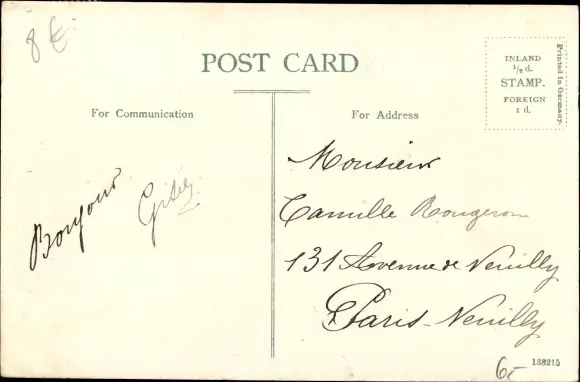 8 €
POST CARD
For Communication
For Address
INLAND
½ d.
STAMP.
FOREIGN
1 d.
Printed in Germany.
Bonjour
Monsieur
Camille Rougeron
131 Avenue de Neuilly
Paris-Neuilly
138215
6-